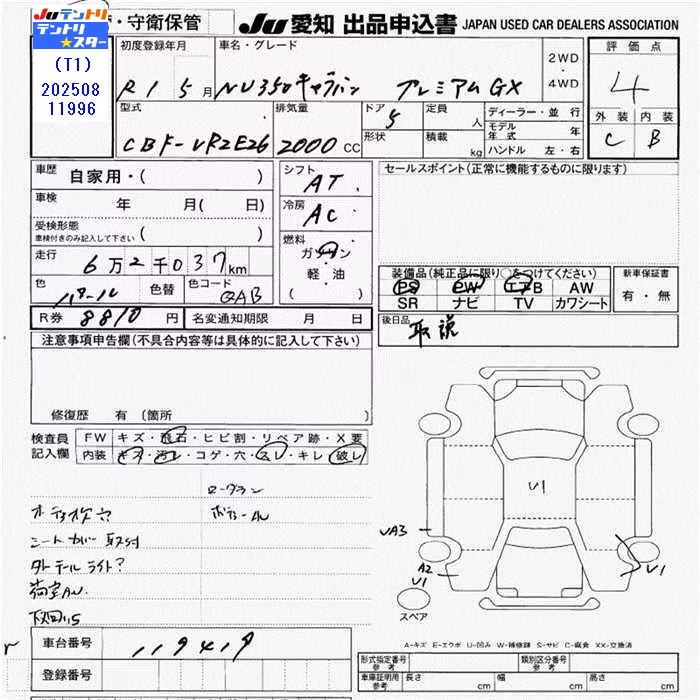 Juテントリ
テントリ★スター
(T1)
202508
11996
・守衛保管
Ju 愛知 出品申込書 JAPAN USED CAR DEALERS ASSOCIATION
初度登録年月
R1 5月
車名・グレード
NV350キャラバン プレミアムGX
2WD
・
4WD
評価点
4
外装 内装
C B
型式
CBF-VR2E26
排気量
2000 CC
ドア
5
形状
定員
人
積載
kg
ディーラー・並行
モデル年式 年
ハンドル 左・右
車歴 自家用・( )
車検 年 月( 日)
受検形態
車検付きのみ記入して下さい ( )
走行 6万2千037km
色 パール 色替 色コード QAB
シフト
AT
冷房
AC
燃料
ガソリン
・
軽油
( )
セールスポイント(正常に機能するものに限ります)
装備品(純正品に限り○をつけてください)
PS PW エアB AW
SR ナビ TV カワシート
新車保証書
有・無
R券 8810円 名変通知期限 月 日
後日品
取説
注意事項申告欄(不具合内容等は具体的に記入して下さい)
修復歴 有(箇所 )
検査員
記入欄
FW キズ・飛石・ヒビ割・リペア跡・X要
内装 キズ・汚レ・コゲ・穴・スレ・キレ・破レ
シートカバー取付
外テールライト?
U1
UA3
A2
U1
U1
スペア
A-キズ E-エクボ U-凹み W-補修跡 S-サビ C-腐食 XX-交換済
車台番号 119419
登録番号
形式指定番号
参考
類別区分番号
参考
車庫証明用
参考
長さ cm 幅 cm 高さ cm